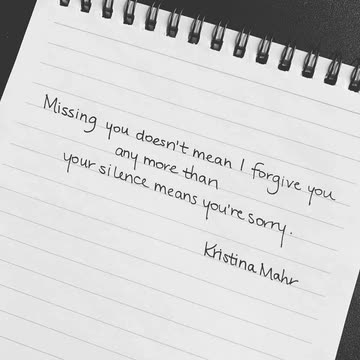 Missing you doesn't mean I forgive you
any more than
your silence means you're sorry.
Kristina Mahr